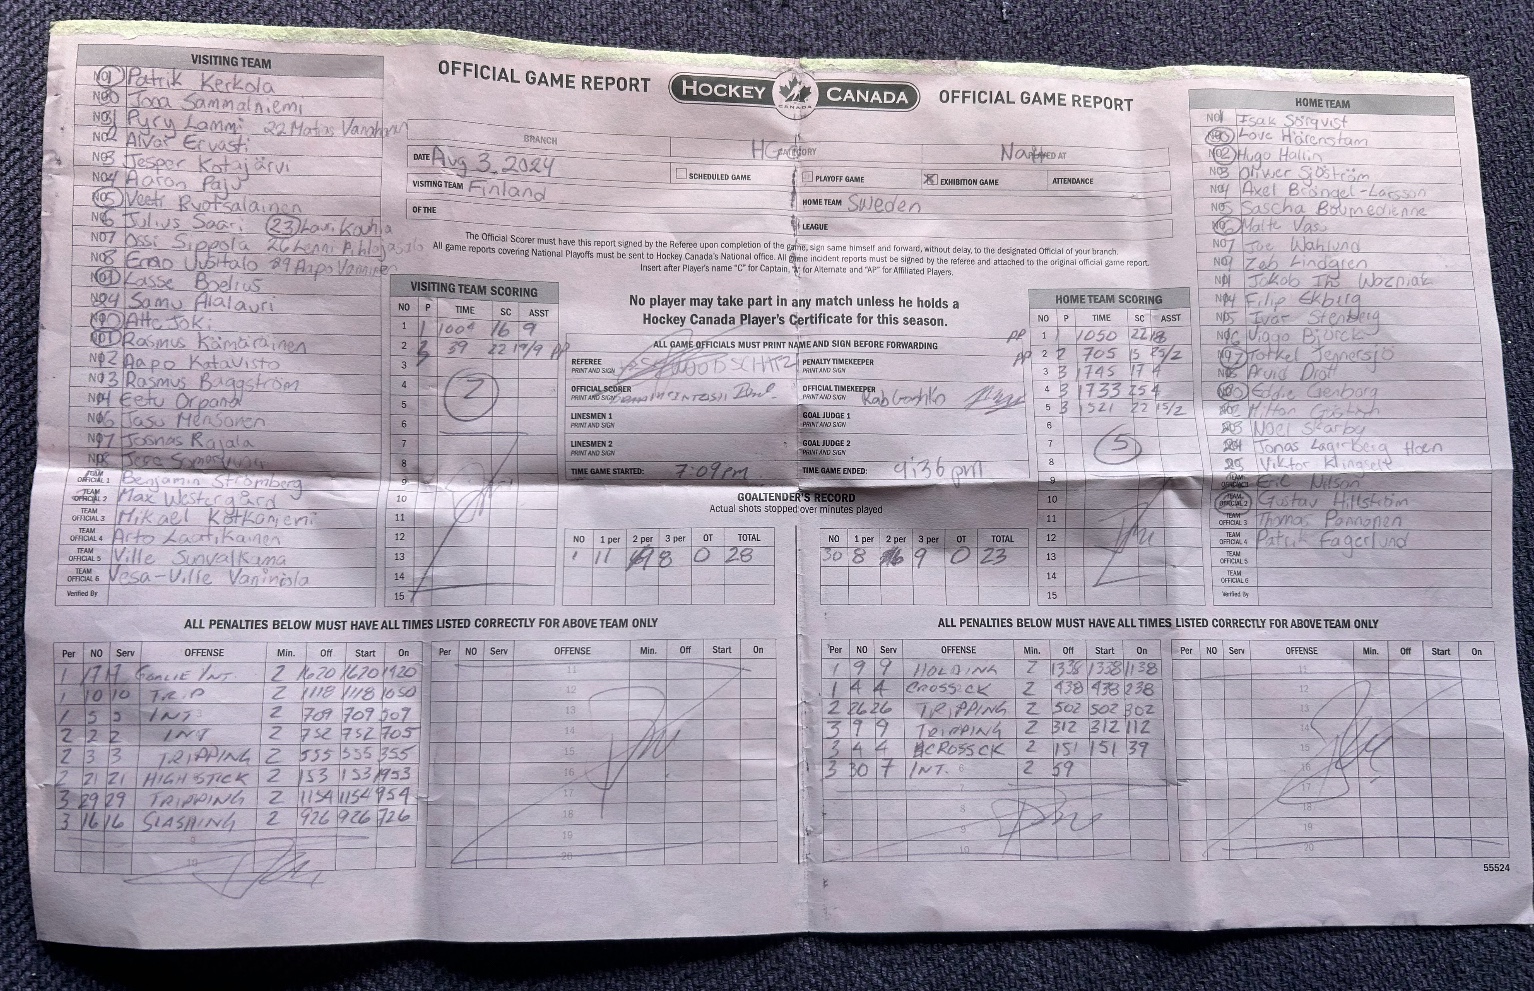 VISITING TEAM
Patrik Kerkola
Jona Sammalniemi
Pyry Lammi 22 Matias Vanhanen
Alvar Ervasti
Jesper Kotajärvi
Aaron Paju
Veeti Ruotsalainen
Julius Saari 23 Lauri Kauhla
Ossi Sippola
Eero Uusitalo 29 Aapo Vanninen
Lasse Boelius
Samu Alalauri
Atte Joki
Rasmus Kämäräinen
Aapo Katavisto
Rasmus Baggström
Eetu Orpana
Jasu Mensonen
Joonas Rajala
TEAM OFFICIAL 1 Benjamin Strömberg
TEAM OFFICIAL 2 Max Westergård
TEAM OFFICIAL 3 Mikael Kotkaniemi
TEAM OFFICIAL 4 Arto Laatikainen
TEAM OFFICIAL 5 Ville Sunvalkama
TEAM OFFICIAL 6 Vesa-Ville Vaninsola
Verified By
OFFICIAL GAME REPORT HOCKEY CANADA OFFICIAL GAME REPORT
CANADA
BRANCH
DATE Aug 3, 2024
SCHEDULED GAME PLAYOFF GAME EXHIBITION GAME ATTENDANCE
VISITING TEAM Finland HOME TEAM Sweden
OF THE LEAGUE
The Official Scorer must have this report signed by the Referee upon completion of the game, sign same himself and forward, without delay, to the designated Official of your branch.
All game reports covering National Playoffs must be sent to Hockey Canada's National office. All game incident reports must be signed by the referee and attached to the original official game report.
Insert after Player's name "C" for Captain, "A" for Alternate and "AP" for Affiliated Players.
VISITING TEAM SCORING
NO P TIME SC ASST
1 1 1004 16 9
2 3 39 22 19/9 PP
3
4
5
2
6
7
8
9
10
11
12
13
14
15
No player may take part in any match unless he holds a
Hockey Canada Player's Certificate for this season.
ALL GAME OFFICIALS MUST PRINT NAME AND SIGN BEFORE FORWARDING
REFEREE PRINT AND SIGN
PENALTY TIMEKEEPER PRINT AND SIGN
OFFICIAL SCORER PRINT AND SIGN
OFFICIAL TIMEKEEPER PRINT AND SIGN
LINESMEN 1 PRINT AND SIGN
GOAL JUDGE 1 PRINT AND SIGN
LINESMEN 2 PRINT AND SIGN
GOAL JUDGE 2 PRINT AND SIGN
TIME GAME STARTED: 7:09pm TIME GAME ENDED: 9:36 pm
GOALTENDER'S RECORD
Actual shots stopped over minutes played
NO 1 per 2 per 3 per OT TOTAL
1 11 9 8 0 28
NO 1 per 2 per 3 per OT TOTAL
30 8 6 9 0 23
HOME TEAM SCORING
NO P TIME SC ASST
1 1050 22 18 PP
2 2 705 15 25/2 PP
3 3 1745 17 4
4 3 1733 25 4
5 3 1521 22 15/2
6
7
5
8
9
10
11
12
13
14
15
HOME TEAM
Isak Sörqvist
Love Härenstam
Hugo Hallin
Oliwer Sjöström
Axel Brängel-Larsson
Sascha Boumedienne
Malte Vass
Joe Wahlund
Zeb Lindgren
Jakob Ihs Wozniak
Filip Ekberg
Ivar Stenberg
Viggo Björck
Torkel Jennersjö
Arvid Drott
Eddie Genborg
Milton Gästrin
Noel Skarby
Jonas Lagerberg Hoen
Viktor Klingsell
Eric Nilson
TEAM OFFICIAL 2 Gustav Hillström
TEAM OFFICIAL 3 Thomas Pannonen
TEAM OFFICIAL 4 Patrik Fagerlund
TEAM OFFICIAL 5
TEAM OFFICIAL 6
Verified By
ALL PENALTIES BELOW MUST HAVE ALL TIMES LISTED CORRECTLY FOR ABOVE TEAM ONLY
Per NO Serv OFFENSE Min. Off Start On
1 17 17 GOALIE INT. 2 1620 1620 1420
1 10 10 TRIP 2 1118 1118 1050
1 5 5 INT 2 709 709 509
2 2 2 INT 2 752 752 705
2 3 3 TRIPPING 2 555 555 355
2 21 21 HIGH STICK 2 153 153 1953
3 29 29 TRIPPING 2 1154 1154 954
3 16 16 SLASHING 2 926 926 726
9
10
Per NO Serv OFFENSE Min. Off Start On
11
12
13
14
15
16
17
18
19
20
ALL PENALTIES BELOW MUST HAVE ALL TIMES LISTED CORRECTLY FOR ABOVE TEAM ONLY
Per NO Serv OFFENSE Min. Off Start On
1 9 9 HOLDING 2 1338 1338 1138
1 4 4 CROSSCK 2 438 438 238
2 26 26 TRIPPING 2 502 502 302
3 9 9 TRIPPING 2 312 312 112
3 4 4 CROSSCK 2 151 151 39
3 30 7 INT. 2 59
7
8
9
10
Per NO Serv OFFENSE Min. Off Start On
11
12
13
14
15
16
17
18
19
20
55524